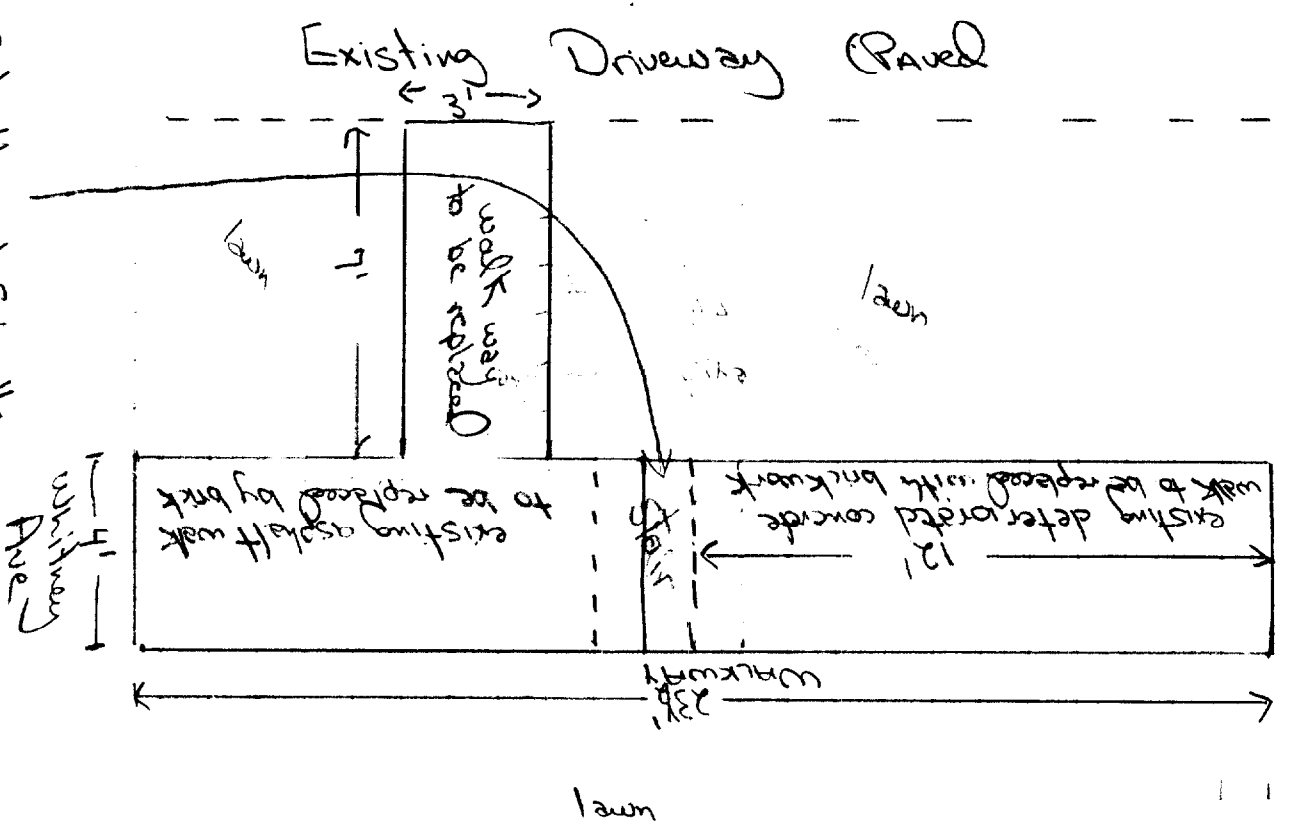 Existing Driveway (Paved
3'
7'
lawn
walk way
to be replaced
lawn
existing asphalt walk
to be replaced by brick
step
existing deteriorated concrete
walk to be replaced with brickwork
12'
4'
Whitney
Ave
WALKWAY
lawn